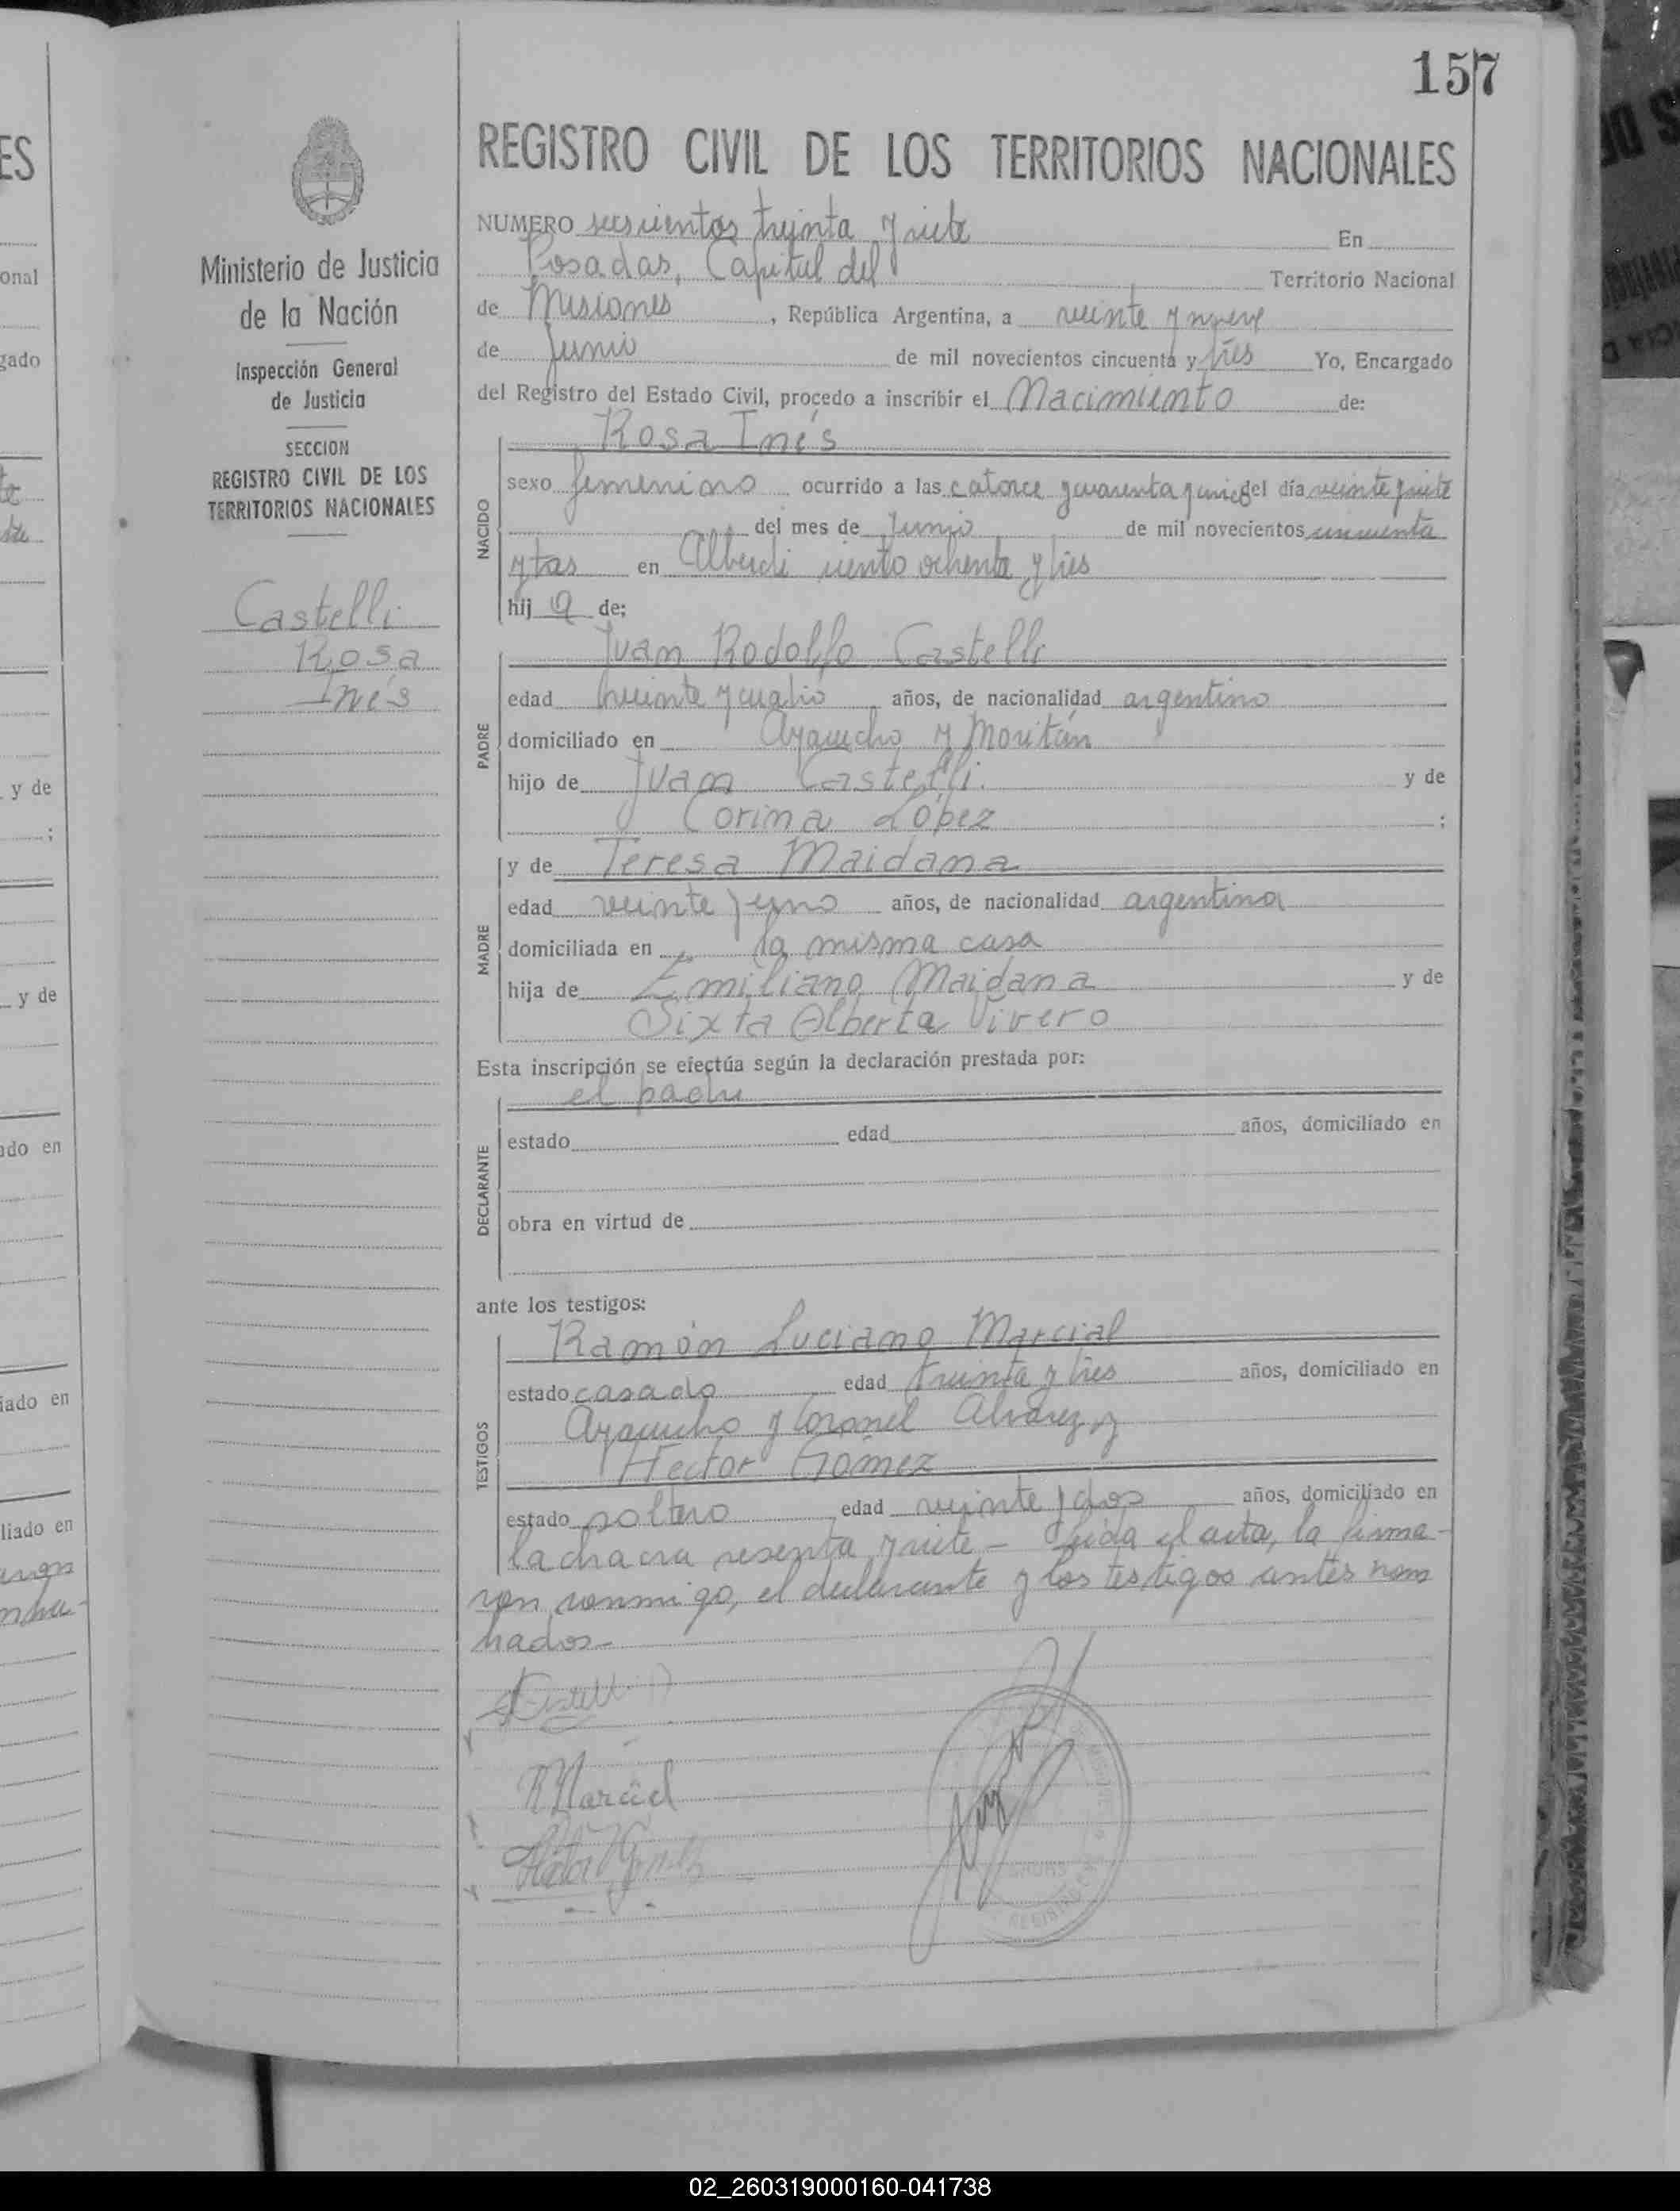 157
REGISTRO CIVIL DE LOS TERRITORIOS NACIONALES
Ministerio de Justicia
de la Nación
Inspección General
de Justicia
SECCION
REGISTRO CIVIL DE LOS
TERRITORIOS NACIONALES
Castelli
Rosa
Inés
NUMERO seiscientos treinta y siete En
Posadas, Capital del Territorio Nacional
de Misiones, República Argentina, a veinte y nueve
de Junio de mil novecientos cincuenta y tres Yo, Encargado
del Registro del Estado Civil, procedo a inscribir el Nacimiento de:
NACIDO
Rosa Inés
sexo femenino ocurrido a las catorce y cuarenta y cinco del día veinte y siete
del mes de Junio de mil novecientos cincuenta
y tres en Alberdi ciento ochenta y tres
hij a de:
PADRE
Juan Rodolfo Castelli
edad veinte y cuatro años, de nacionalidad argentino
domiciliado en Ayacucho y Moritán
hijo de Juan Castelli. y de
Corina López ;
MADRE
y de Teresa Maidana
edad veinte y uno años, de nacionalidad argentina
domiciliada en la misma casa
hija de Emiliano Maidana y de
Sixta Alberta Vivero
Esta inscripción se efectúa según la declaración prestada por:
DECLARANTE
el padre
estado edad años, domiciliado en
obra en virtud de
ante los testigos:
TESTIGOS
Ramón Luciano Marcial
estado casado edad treinta y tres años, domiciliado en
Ayacucho y Coronel Alvarez, y
Hector Gómez
estado soltero edad veinte y dos años, domiciliado en
la chacra sesenta y siete - Leida el acta, la firma-
ron conmigo, el declarante y los testigos antes nom
brados-
Castelli
R Marcial
Hector Gómez
REGISTRO
02_260319000160-041738